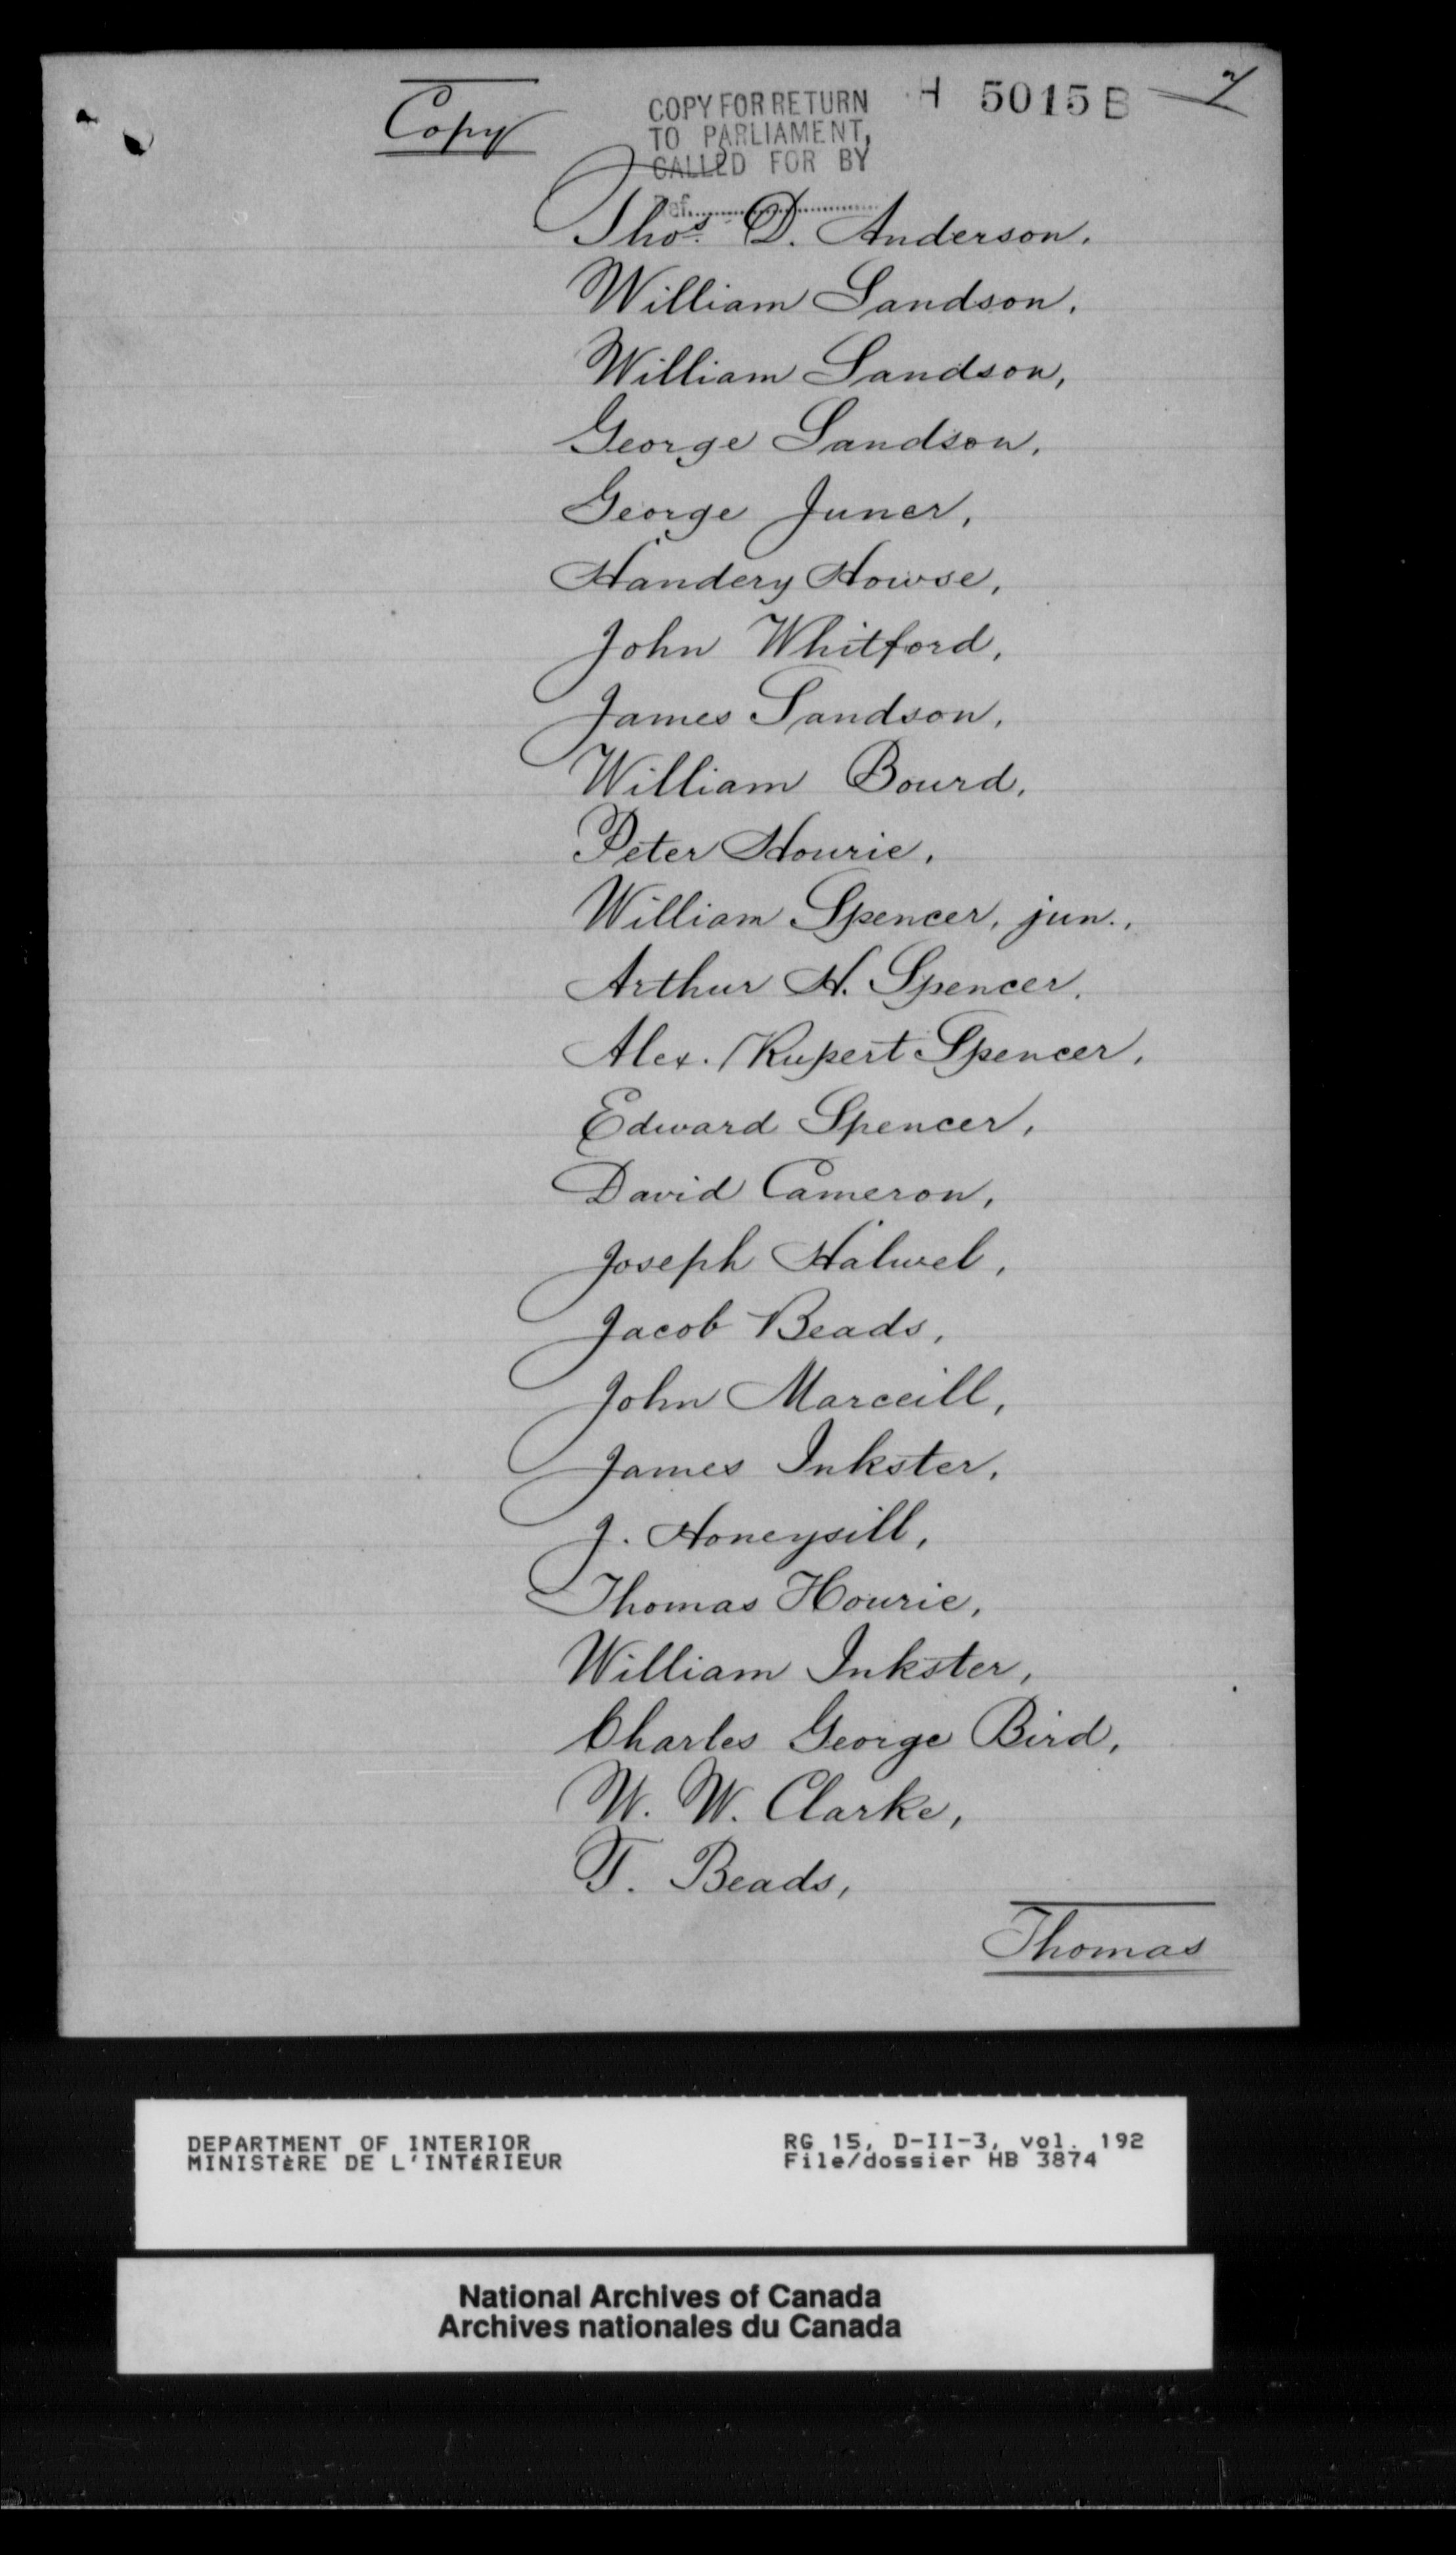 Copy
COPY FOR RETURN
TO PARLIAMENT,
CALLED FOR BY
Ref.
H 5015 B
Thos. D. Anderson.
William Sandson.
William Sandson,
George Sandson.
George Juner,
Handery Howse,
John Whitford,
James Sandson.
William Bourd,
Peter Hourie,
William Spencer, jun.,
Arthur H. Spencer.
Alex. Rupert Spencer,
Edward Spencer,
David Cameron,
Joseph Halwel,
Jacob Beads,
John Marceill,
James Inkster,
J. Honeysill,
Thomas Hourie,
William Inkster,
Charles George Bird,
W. W. Clarke,
T. Beads,
Thomas
DEPARTMENT OF INTERIOR
MINISTÈRE DE L'INTÉRIEUR
RG 15, D-II-3, vol. 192
File/dossier HB 3874
National Archives of Canada
Archives nationales du Canada